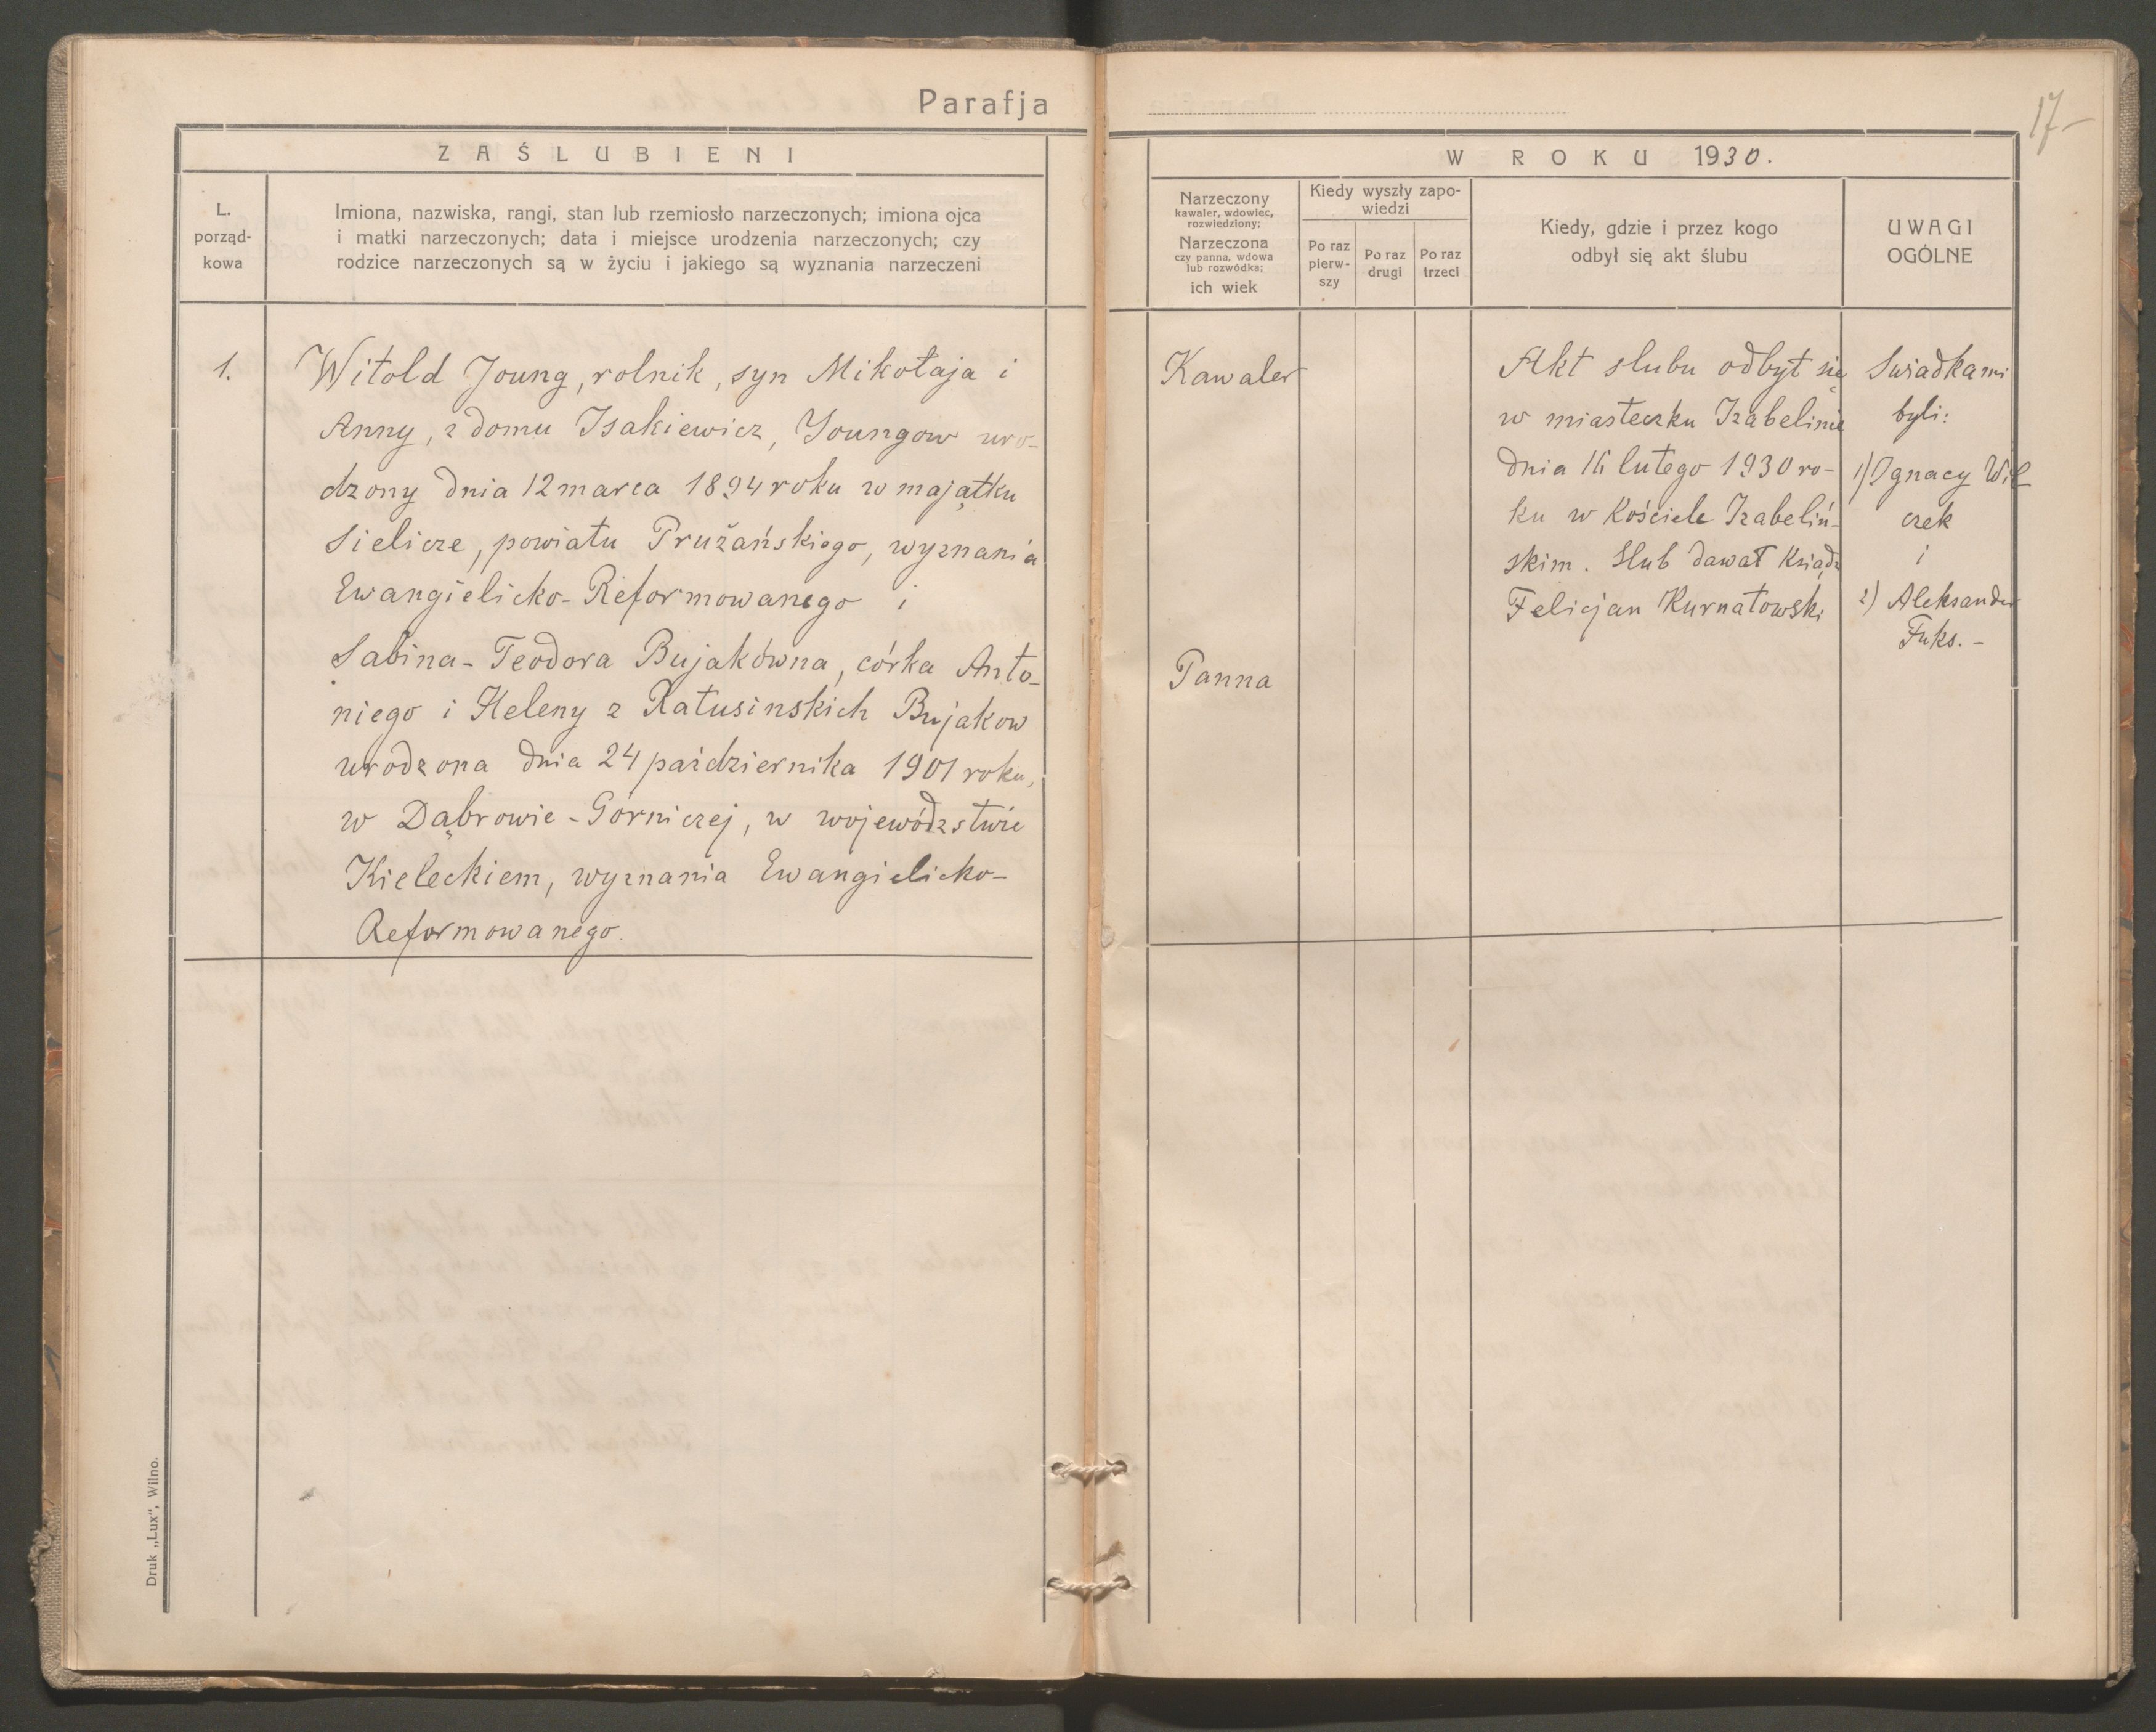 Parafja
17-
ZAŚLUBIENI
W ROKU 1930.
L. porząd-
kowa
Imiona, nazwiska, rangi, stan lub rzemiosło narzeczonych; imiona ojca
i matki narzeczonych; data i miejsce urodzenia narzeczonych; czy
rodzice narzeczonych są w życiu i jakiego są wyznania narzeczeni
Narzeczony
kawaler, wdowiec,
rozwiedziony;
Narzeczona
czy panna, wdowa
lub rozwódka;
ich wiek
Kiedy wyszły zapo-
wiedzi
Po raz
pierw-
szy
Po raz
drugi
Po raz
trzeci
Kiedy, gdzie i przez kogo
odbył się akt ślubu
UWAGI
OGÓLNE
1.
Witold Joung, rolnik, syn Mikołaja i
Anny, z domu Isakiewicz, Youngow uro-
dzony dnia 12 marca 1894 roku w majątku
Sielicze, powiatu Prużańskiego, wyznania
Ewangielicko-Reformowanego i
Sabina-Teodora Bujakówna, córka Anto-
niego i Heleny z Ratusinskich Bujakow
urodzona dnia 24 października 1901 roku,
w Dąbrowie-Górniczej, w wojewódzstwie
Kieleckiem, wyznania Ewangielicko-
Reformowanego.
Kawaler
Panna
Akt slubu odbył się
w miasteczku Izabelinie
dnia 16 lutego 1930 ro-
ku w Kościele Izabeliń-
skim. Slub dawał Ksiądz
Felicjan Kurnatowski
Swiadkami
byli:
1) Ignacy Wil
czek
i
2) Aleksander
Fuks.-
Druk „Lux", Wilno.